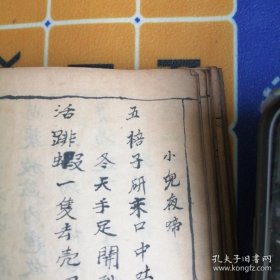 小兒夜啼
五棓子研末口中吐
冬天手足開裂
活跳蝦一隻去壳
孔夫子旧书网